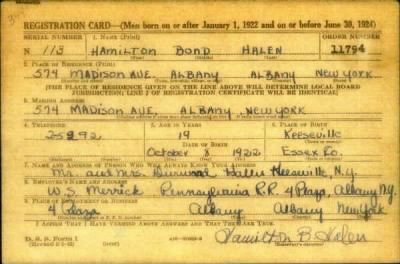 REGISTRATION CARD—(Men born on or after January 1, 1922 and on or before June 30, 1924)
SERIAL NUMBER 1. NAME (Print) ORDER NUMBER
N 113 HAMILTON BOND HALEN 11794
(First) (Middle) (Last)
2. PLACE OF RESIDENCE (Print)
574 MADISON AVE. ALBANY ALBANY NEW YORK
(THE PLACE OF RESIDENCE GIVEN ON THE LINE ABOVE WILL DETERMINE LOCAL BOARD
JURISDICTION; LINE 2 OF REGISTRATION CERTIFICATE WILL BE IDENTICAL)
3. MAILING ADDRESS
574 MADISON AVE. ALBANY, NEW YORK
4. TELEPHONE 5. AGE IN YEARS 6. PLACE OF BIRTH
19 Keeseville
DATE OF BIRTH
October 8 1922 Essex Co.
7. NAME AND ADDRESS OF PERSON WHO WILL ALWAYS KNOW YOUR ADDRESS
Mr. and Mrs. Halen Keeseville, N.Y.
8. EMPLOYER'S NAME AND ADDRESS
W.S. Merrick Pennsylvania R.R. 4 Plaza, Albany N.Y.
9. PLACE OF EMPLOYMENT OR BUSINESS
4 Plaza Albany Albany New York
I AFFIRM THAT I HAVE VERIFIED ABOVE ANSWERS AND THAT THEY ARE TRUE.
D. S. S. Form 1
Hamilton B. Halen